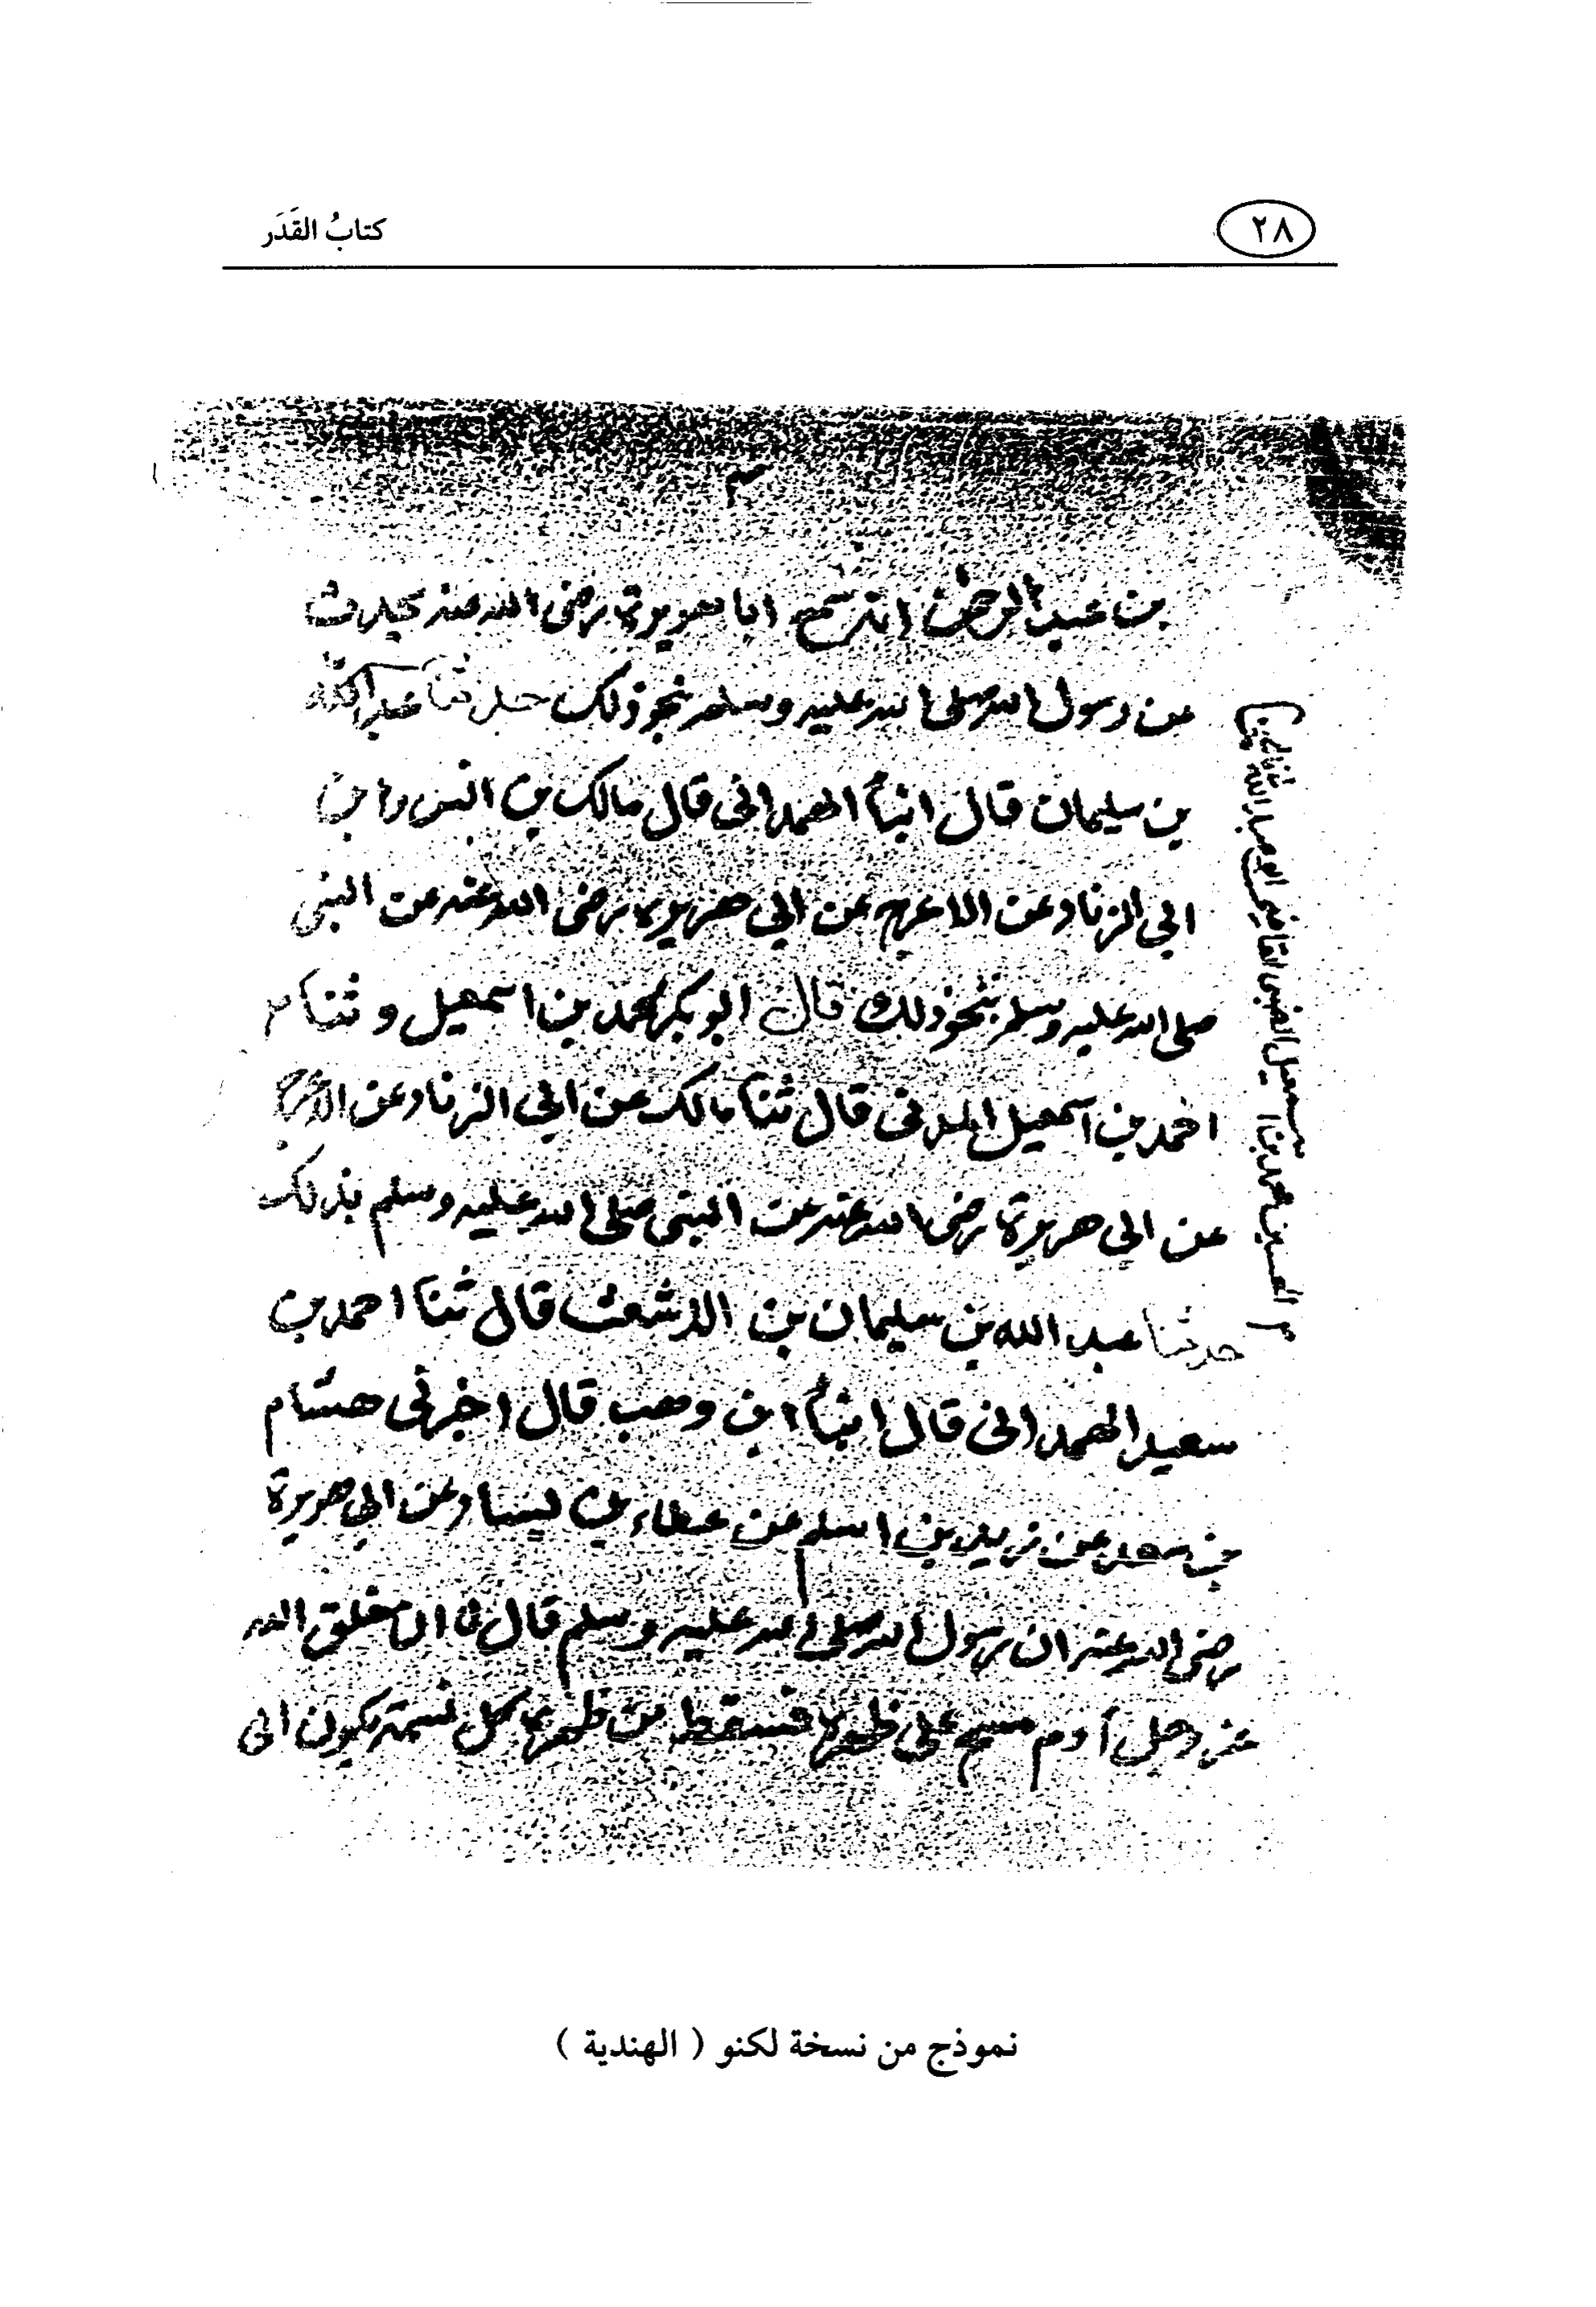 ٢٨
كتابُ القَدَر
بن عبد الرحمن انه سمع ابا هريرة رضى الله عنه يحدث
عن رسول الله صلى الله عليه وسلم بنحو ذلك حدثنا عبد الله
بن سليمان قال انبأ الهمدانى قال مالك بن انس
ابي الزناد عن الاعرج عن ابي هريرة رضى الله عنه عن النبى
صلى الله عليه وسلم بنحو ذلك قال ابو بكر محمد بن اسمعيل و ثنا
احمد بن اسمعيل المدنى قال ثنا مالك عن ابي الزناد عن الاعرج
عن ابي هريرة رضى الله عنه عن النبى صلى الله عليه وسلم بذلك
حدثنا عبد الله بن سليمان بن الاشعث قال ثنا احمد بن
سعيد الهمدانى قال انبأ ابن وهب قال اخبرنى هشام
بن سعد عن زيد بن اسلم عن عطاء بن يسار عن ابي هريرة
رضى الله عنه ان رسول الله صلى الله عليه وسلم قال خلق الله
عز وجل آدم مسح على ظهره فسقط من ظهره كل نسمة يكون الى
الحسين محمد بن اسمعيل الضبى القاضى ابو عبد الله
نموذج من نسخة لكنو ( الهندية )